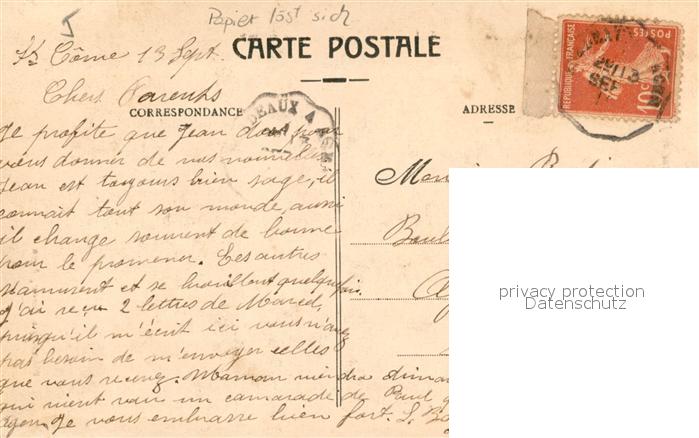 5
Papier löst sich
St Côme 13 Sept.
CARTE POSTALE
RÉPUBLIQUE FRANÇAISE
POSTES
10c
Chers Parents
CORRESPONDANCE
ADRESSE
DEAUX A
Je profite que Jean dort pour
vous donner de nos nouvelles
Jean est toujours bien sage, il
connait tout son monde aussi
il change souvent de bonne
pour le promener. Les autres
s'amusent et se brouillent quelquefois.
J'ai reçu 2 lettres de Marcel,
puisqu'il m'écrit ici vous n'avez
pas besoin de m'envoyer celles
que vous recevez. Maman viendra diman
qui vient voir un camarade de Paul
Je vous embrasse bien fort. S.
privacy protection
Datenschutz